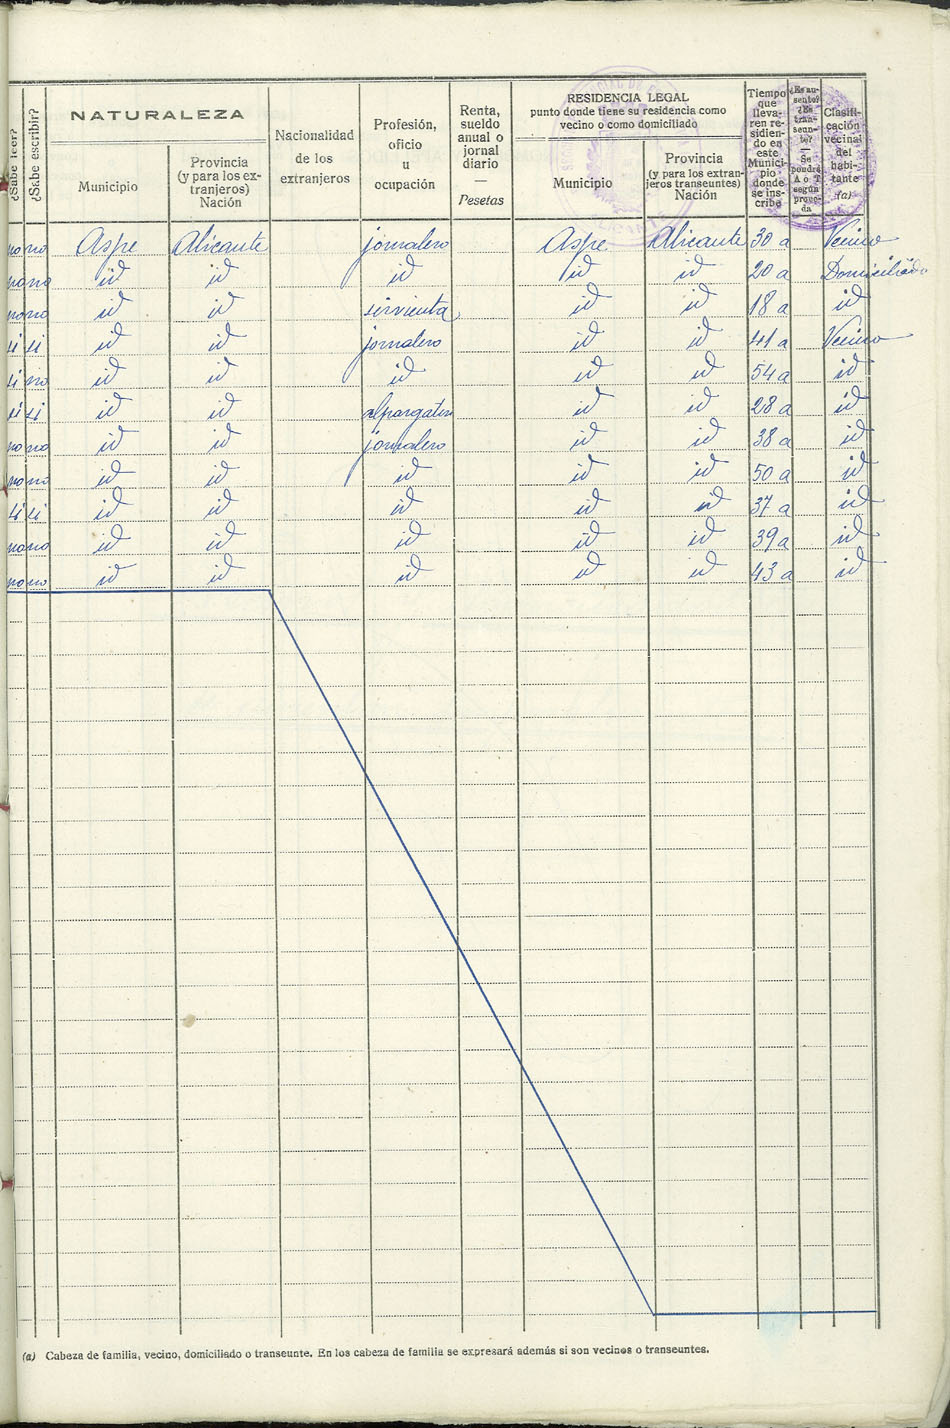 ¿Sabe leer?
¿Sabe escribir?
NATURALEZA
Municipio
Provincia
(y para los ex-
tranjeros)
Nación
Nacionalidad
de los
extranjeros
Profesión,
oficio
u
ocupación
Renta,
sueldo
anual o
jornal
diario
—
Pesetas
RESIDENCIA LEGAL
punto donde tiene su residencia como
vecino o como domiciliado
Municipio
Provincia
(y para los extran-
jeros transeuntes)
Nación
Tiempo
que
lleva-
ren re-
sidien-
do en
este
Munici-
pio
donde
se ins-
cribe
¿Es au-
sente?
¿Es
tran-
seun-
te?
—
Se
pondrá
A o T
según
proce-
da
Clasifi-
cación
vecinal
del
habi-
tante
(a)
no no Aspe Alicante jornalero Aspe Alicante 30 a Vecino
no no id id id id id 20 a Domiciliado
no no id id sirvienta id id 18 a id
si si id id jornalero id id 41 a Vecino
si no id id id id id 54 a id
si si id id id id 28 a id
no no id id jornalero id id 38 a id
no no id id id id id 50 a id
si si id id id id id 37 a id
no no id id id id id 39 a id
no no id id id id id 43 a id
(a) Cabeza de familia, vecino, domiciliado o transeunte. En los cabeza de familia se expresará además si son vecinos o transeuntes.